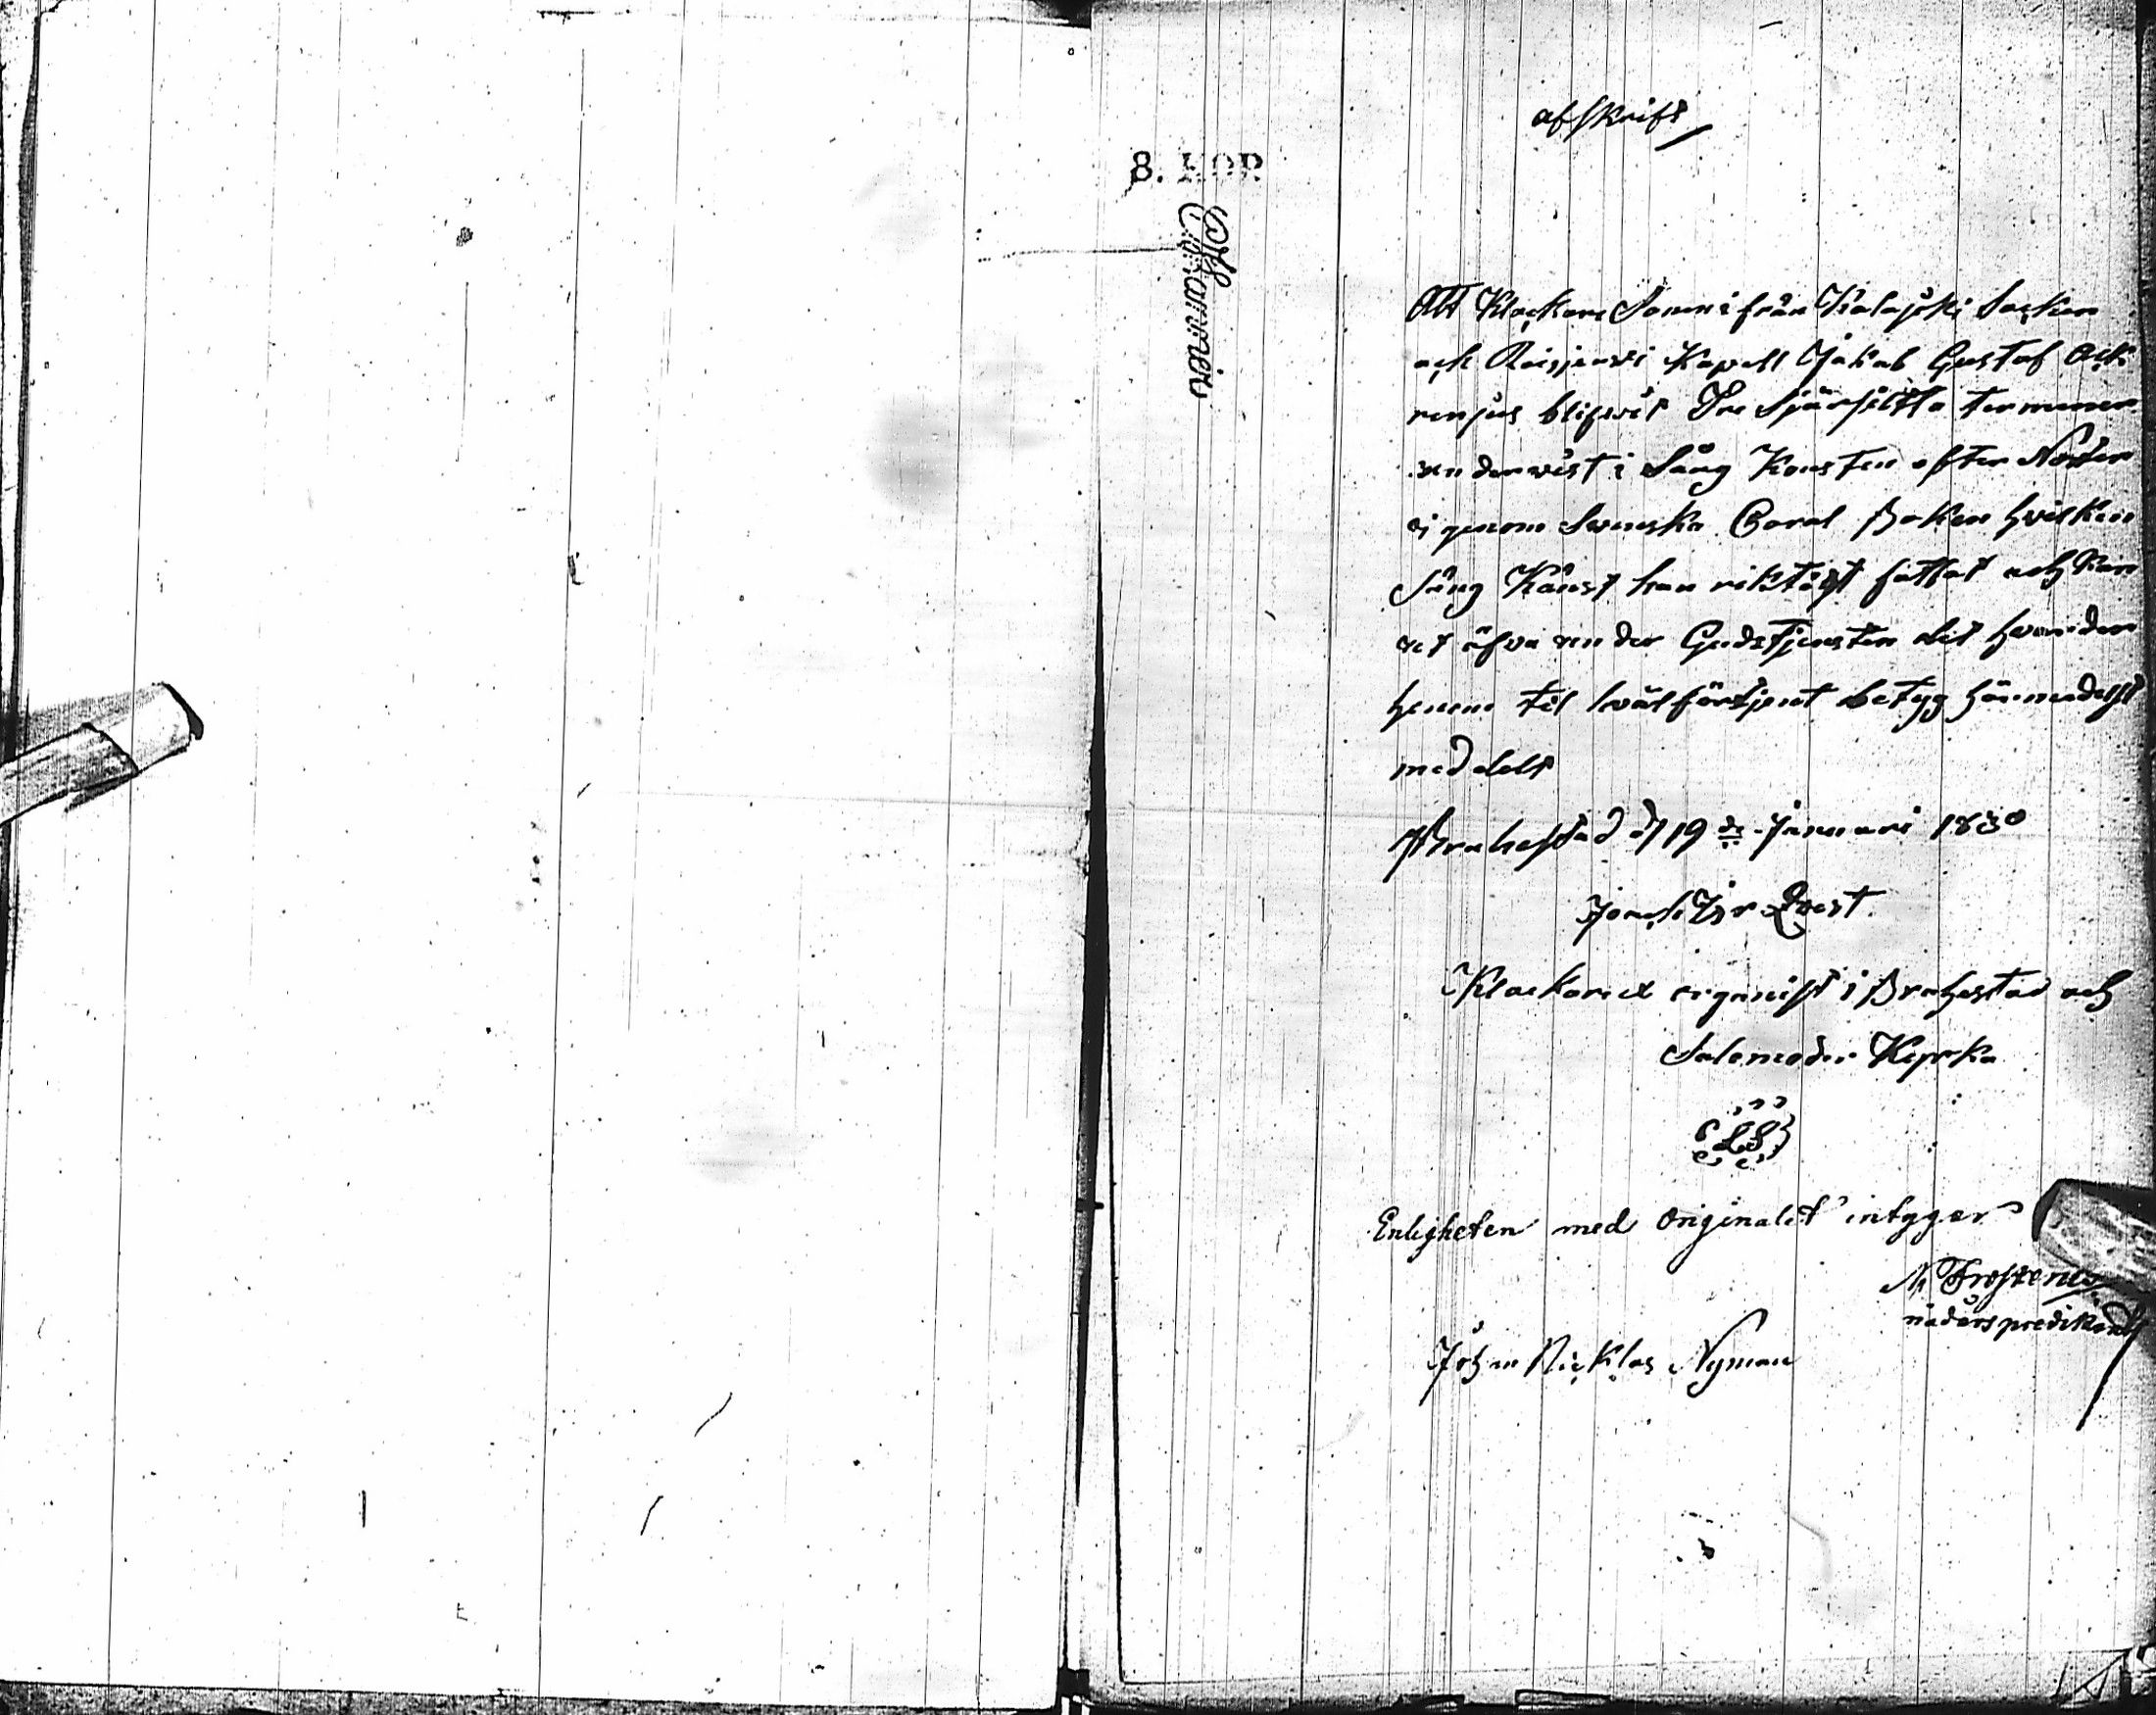 afskrift
8. KOP
Att Klockare Sonen från Kalajoki Socken
och Reisjerwi Kapell Jakab Gustaf
blifwit Tre Sjärskilta terminer
underwist i Sång Konsten efter Noter
igenom Swenska Coral Boken hvilken
Sång Kånst han riktigt fattat och kan
Gudstjensten
honom til wälförtjent betyg härmedelst
meddelt
Brahestad d 19de Januari 1830
Qvist
Klockare & organist i Brahestad och
Salemoder Kyrka
LS
Enligheten med Originalet intygar
N Frosterus
nådårspredikant
Johan Nicklas Nyman